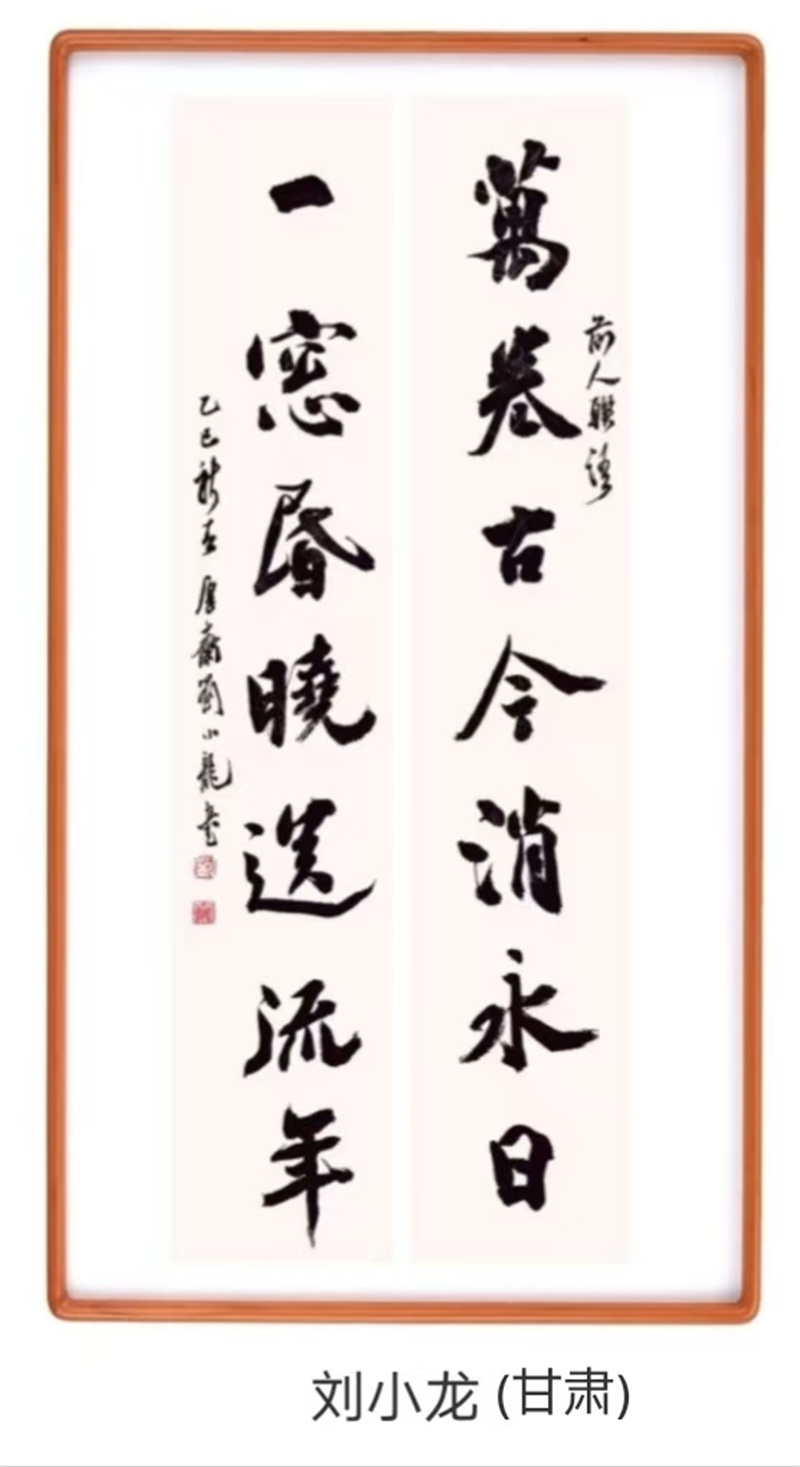 萬卷古今消永日
前人聯語
一窓昏曉送流年
乙巳新春厚齋劉小龍書
刘小龙 (甘肃)